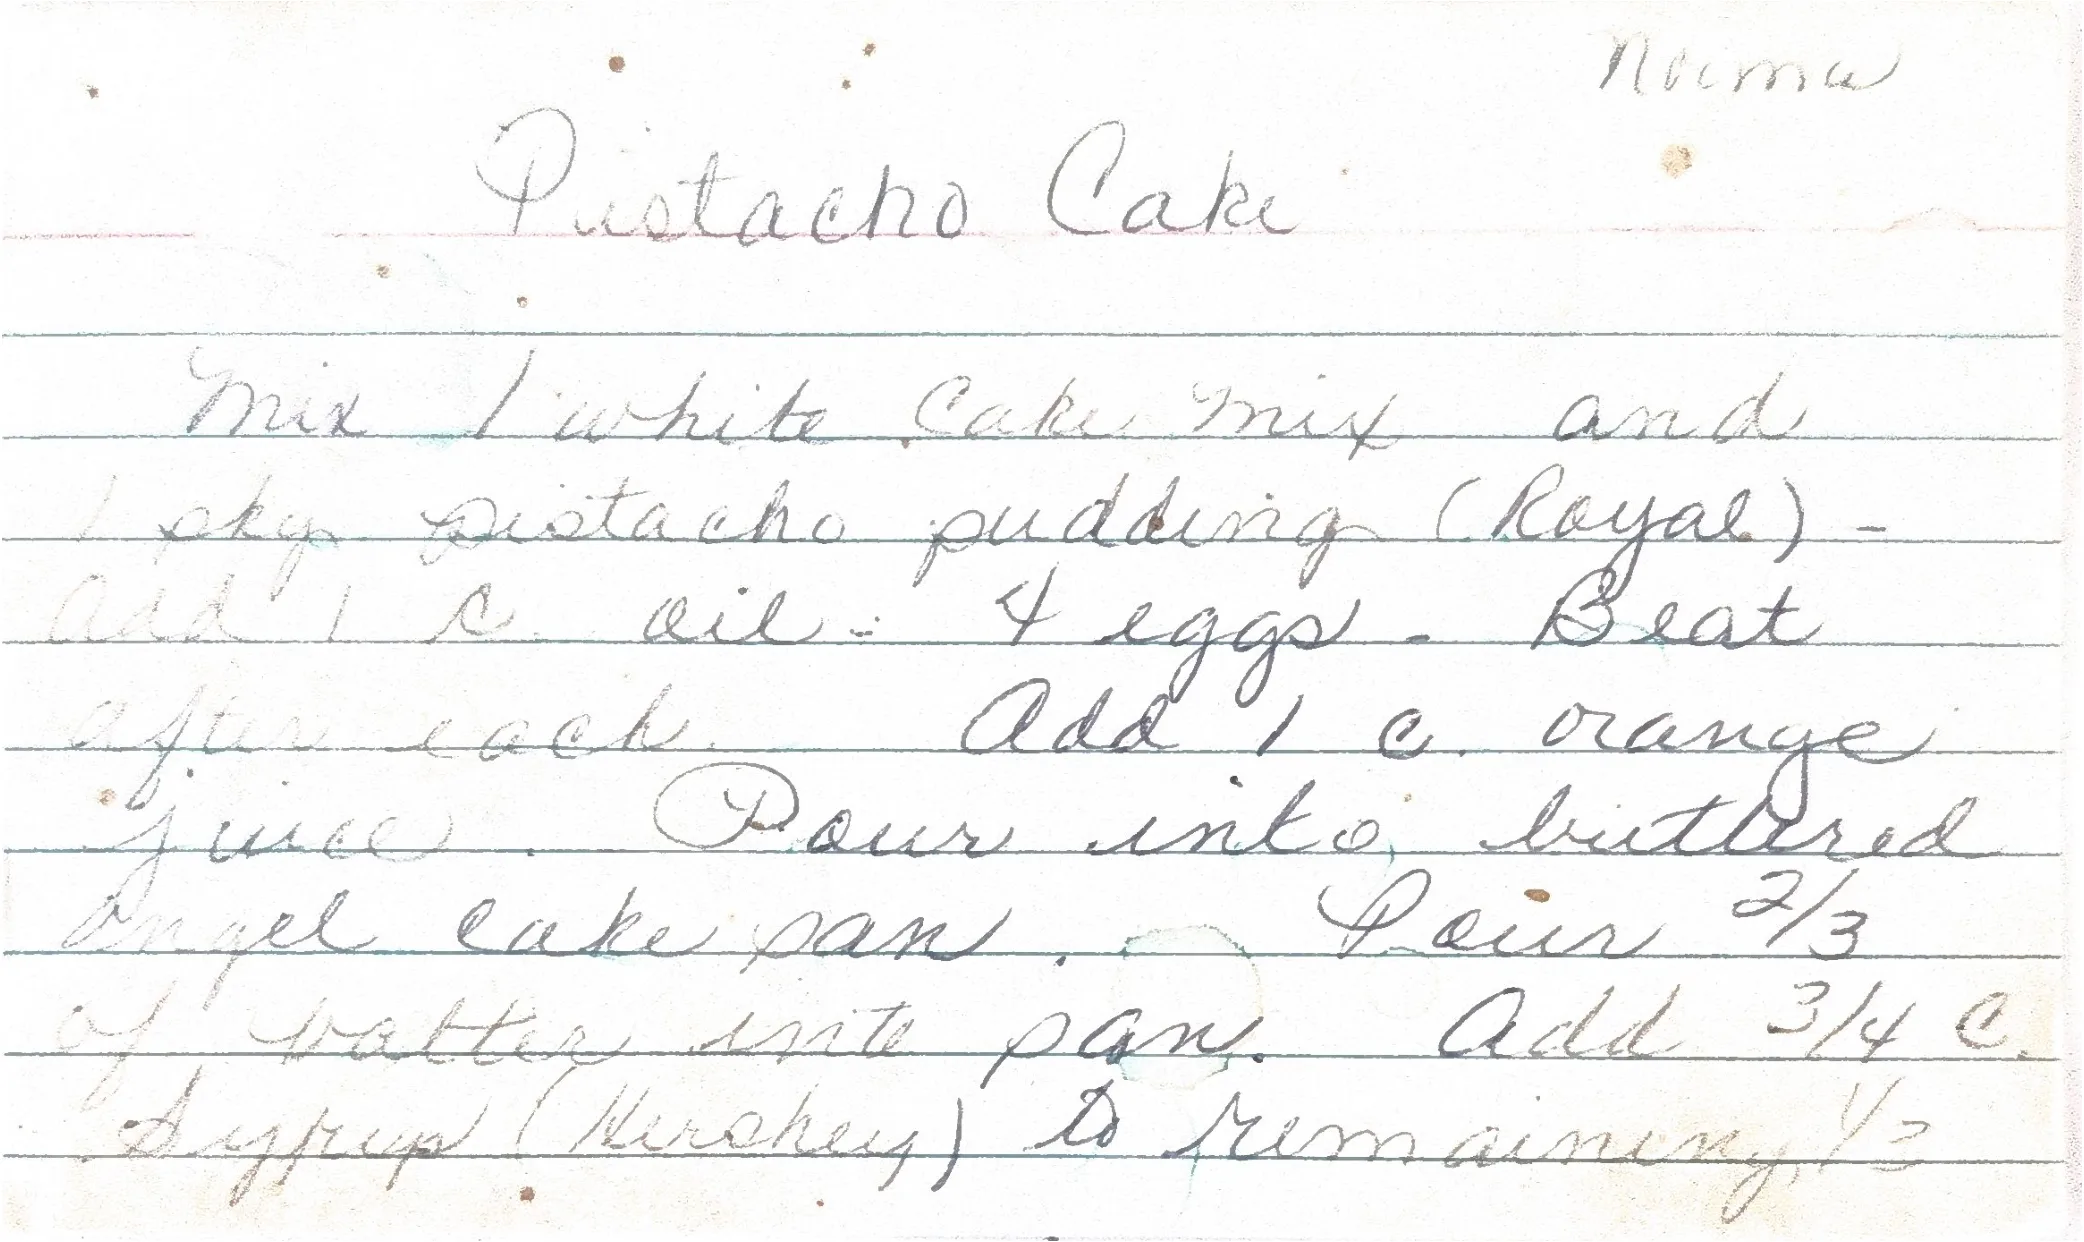 Norma
Pistacho Cake
Mix 1 white Cake Mix and
1 pkg pistacho pudding (Royal) -
Add 1 c. oil - 4 eggs - Beat
after each. Add 1 c. orange
juice. Pour into buttered
angel cake pan. Pour 2/3
of batter into pan. Add 3/4 C.
Syrup (Hershey) to remaining 1/3